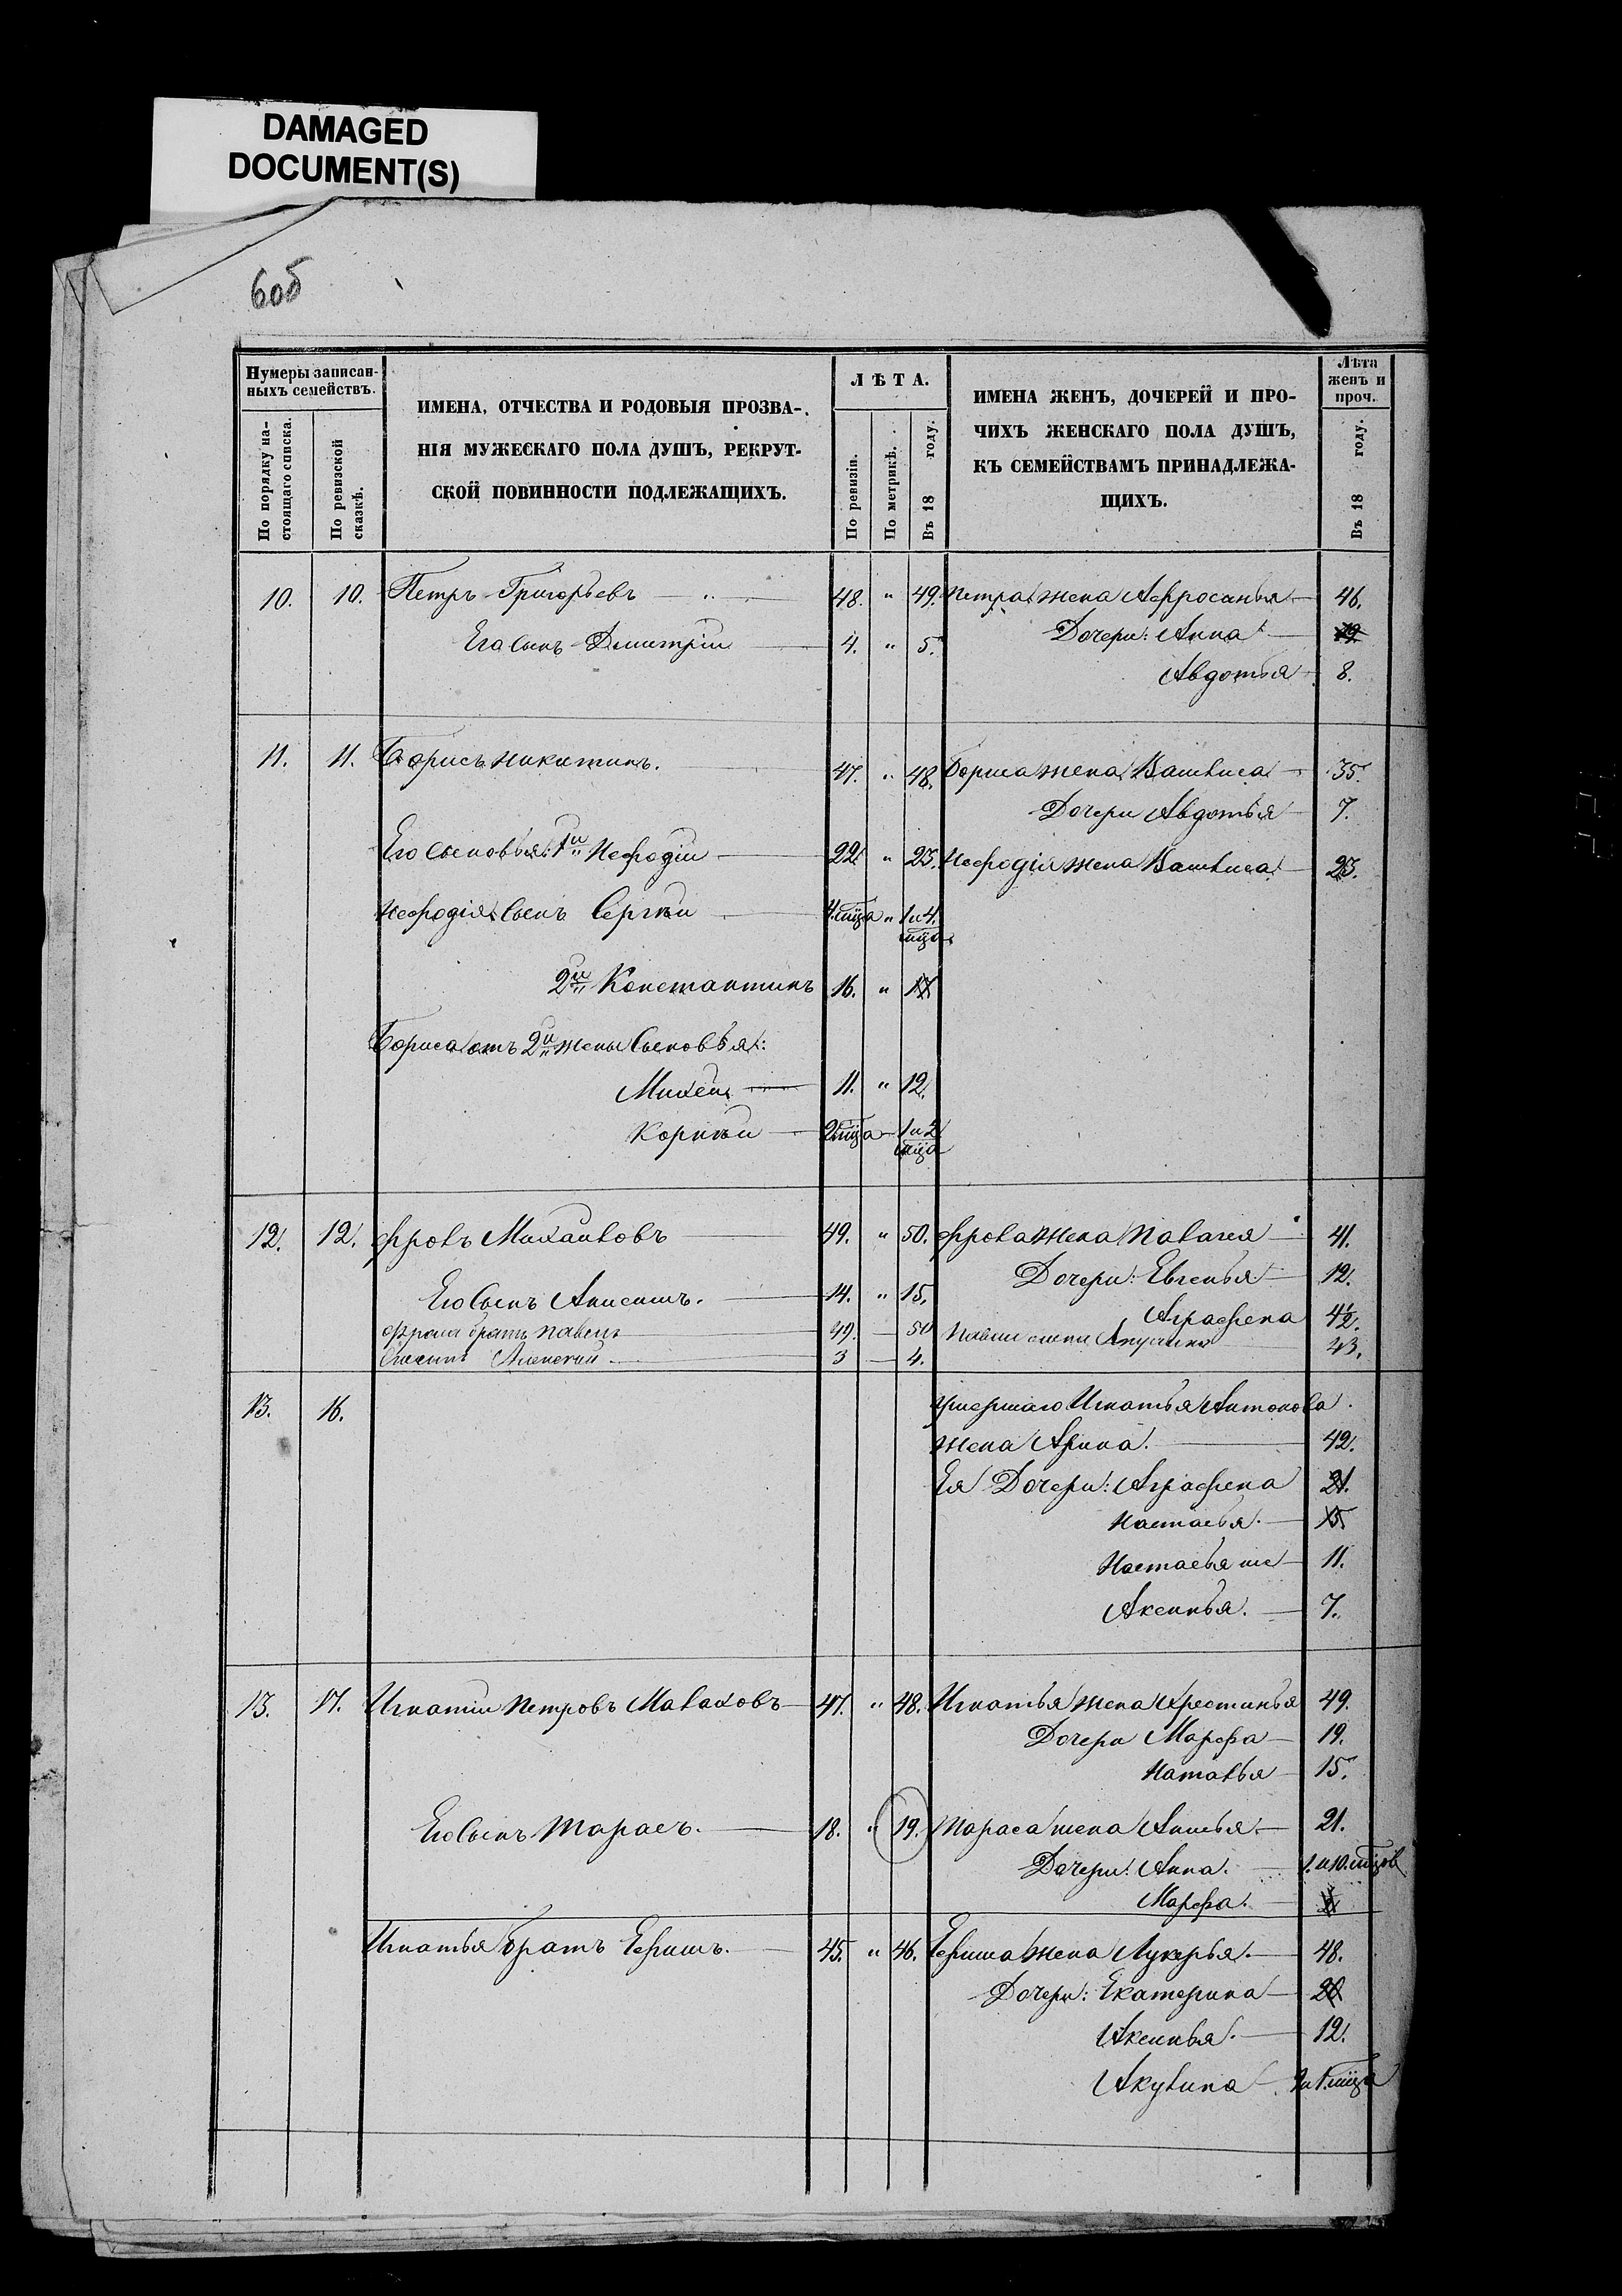 DAMAGED
DOCUMENT(S)
6об
Нумеры записан-
ныхъ семействъ.
По порядку на-
стоящаго списка.
По ревизской
сказкѣ.
ИМЕНА, ОТЧЕСТВА И РОДОВЫЯ ПРОЗВА-
НІЯ МУЖЕСКАГО ПОЛА ДУШЪ, РЕКРУТ-
СКОЙ ПОВИННОСТИ ПОДЛЕЖАЩИХЪ.
ЛѢТА.
По ревизіи.
По метрикѣ.
Въ 18 году.
ИМЕНА ЖЕНЪ, ДОЧЕРЕЙ И ПРО-
ЧИХЪ ЖЕНСКАГО ПОЛА ДУШЪ,
КЪ СЕМЕЙСТВАМЪ ПРИНАДЛЕЖА-
ЩИХЪ.
Лѣта
женъ и
проч.
Въ 18 году.
10. 10. Петръ Григорьевъ — " — 48. " 49. Петра жена Афросинья — 46.
Его сынъ Дмитрій — 4. " 5. Дочери: Анна — 19.
Авдотья 8.
11. 11. Борисъ Никитинъ. — 47. " 48. Бориса жена Василиса — 35.
Дочери Авдотья — 7.
Его сыновья: 1й Нефодій — 22. " 23. Нефодія жена Василиса — 23.
Нефодія сынъ Сергѣй — 4. мца " 1 и 4.
мца
2й Константинъ 16. " 17
Бориса отъ 2й жены сыновья:
Михей — 11. " 12.
Корнѣй — 2 мца — 1 и 2
мца
12. 12. Фролъ Михайловъ — 49. " 50. Фрола жена Палагея — 41.
Дочери: Евгенья — 12.
Его сынъ Анисимъ. — 14. " 15.
Аграфена 4½.
Фрола братъ Павелъ — 49. — 50 Павла жена 43.
3 — 4.
13. 16. умершаго Игнатья Антонова
жена Арина. — 42.
Ея Дочери: Аграфена 21.
Настасья. — 15
Настасья же — 11.
Аксинья. — 7.
13. 17. Игнатій Петровъ Малаховъ — 47. " 48. Игнатья жена Хрестинья 49.
Дочери Марфа — 19.
Наталья — 15.
Его сынъ Тарасъ. — 18. " 19. Тараса жена Анисья. — 21.
Дочери: Анна. — 1. и 10. мцов
Марфа. —
Игнатья братъ Ефимъ. — 45. " 46. Ефима жена Лукерья. — 48.
Дочери: Екатерина — 20
Аксинья. — 12.
Акулина — мца